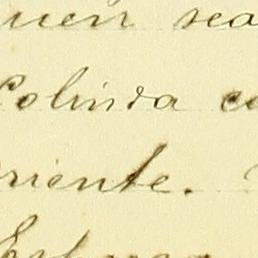 uén sea
Colinda co
riente.